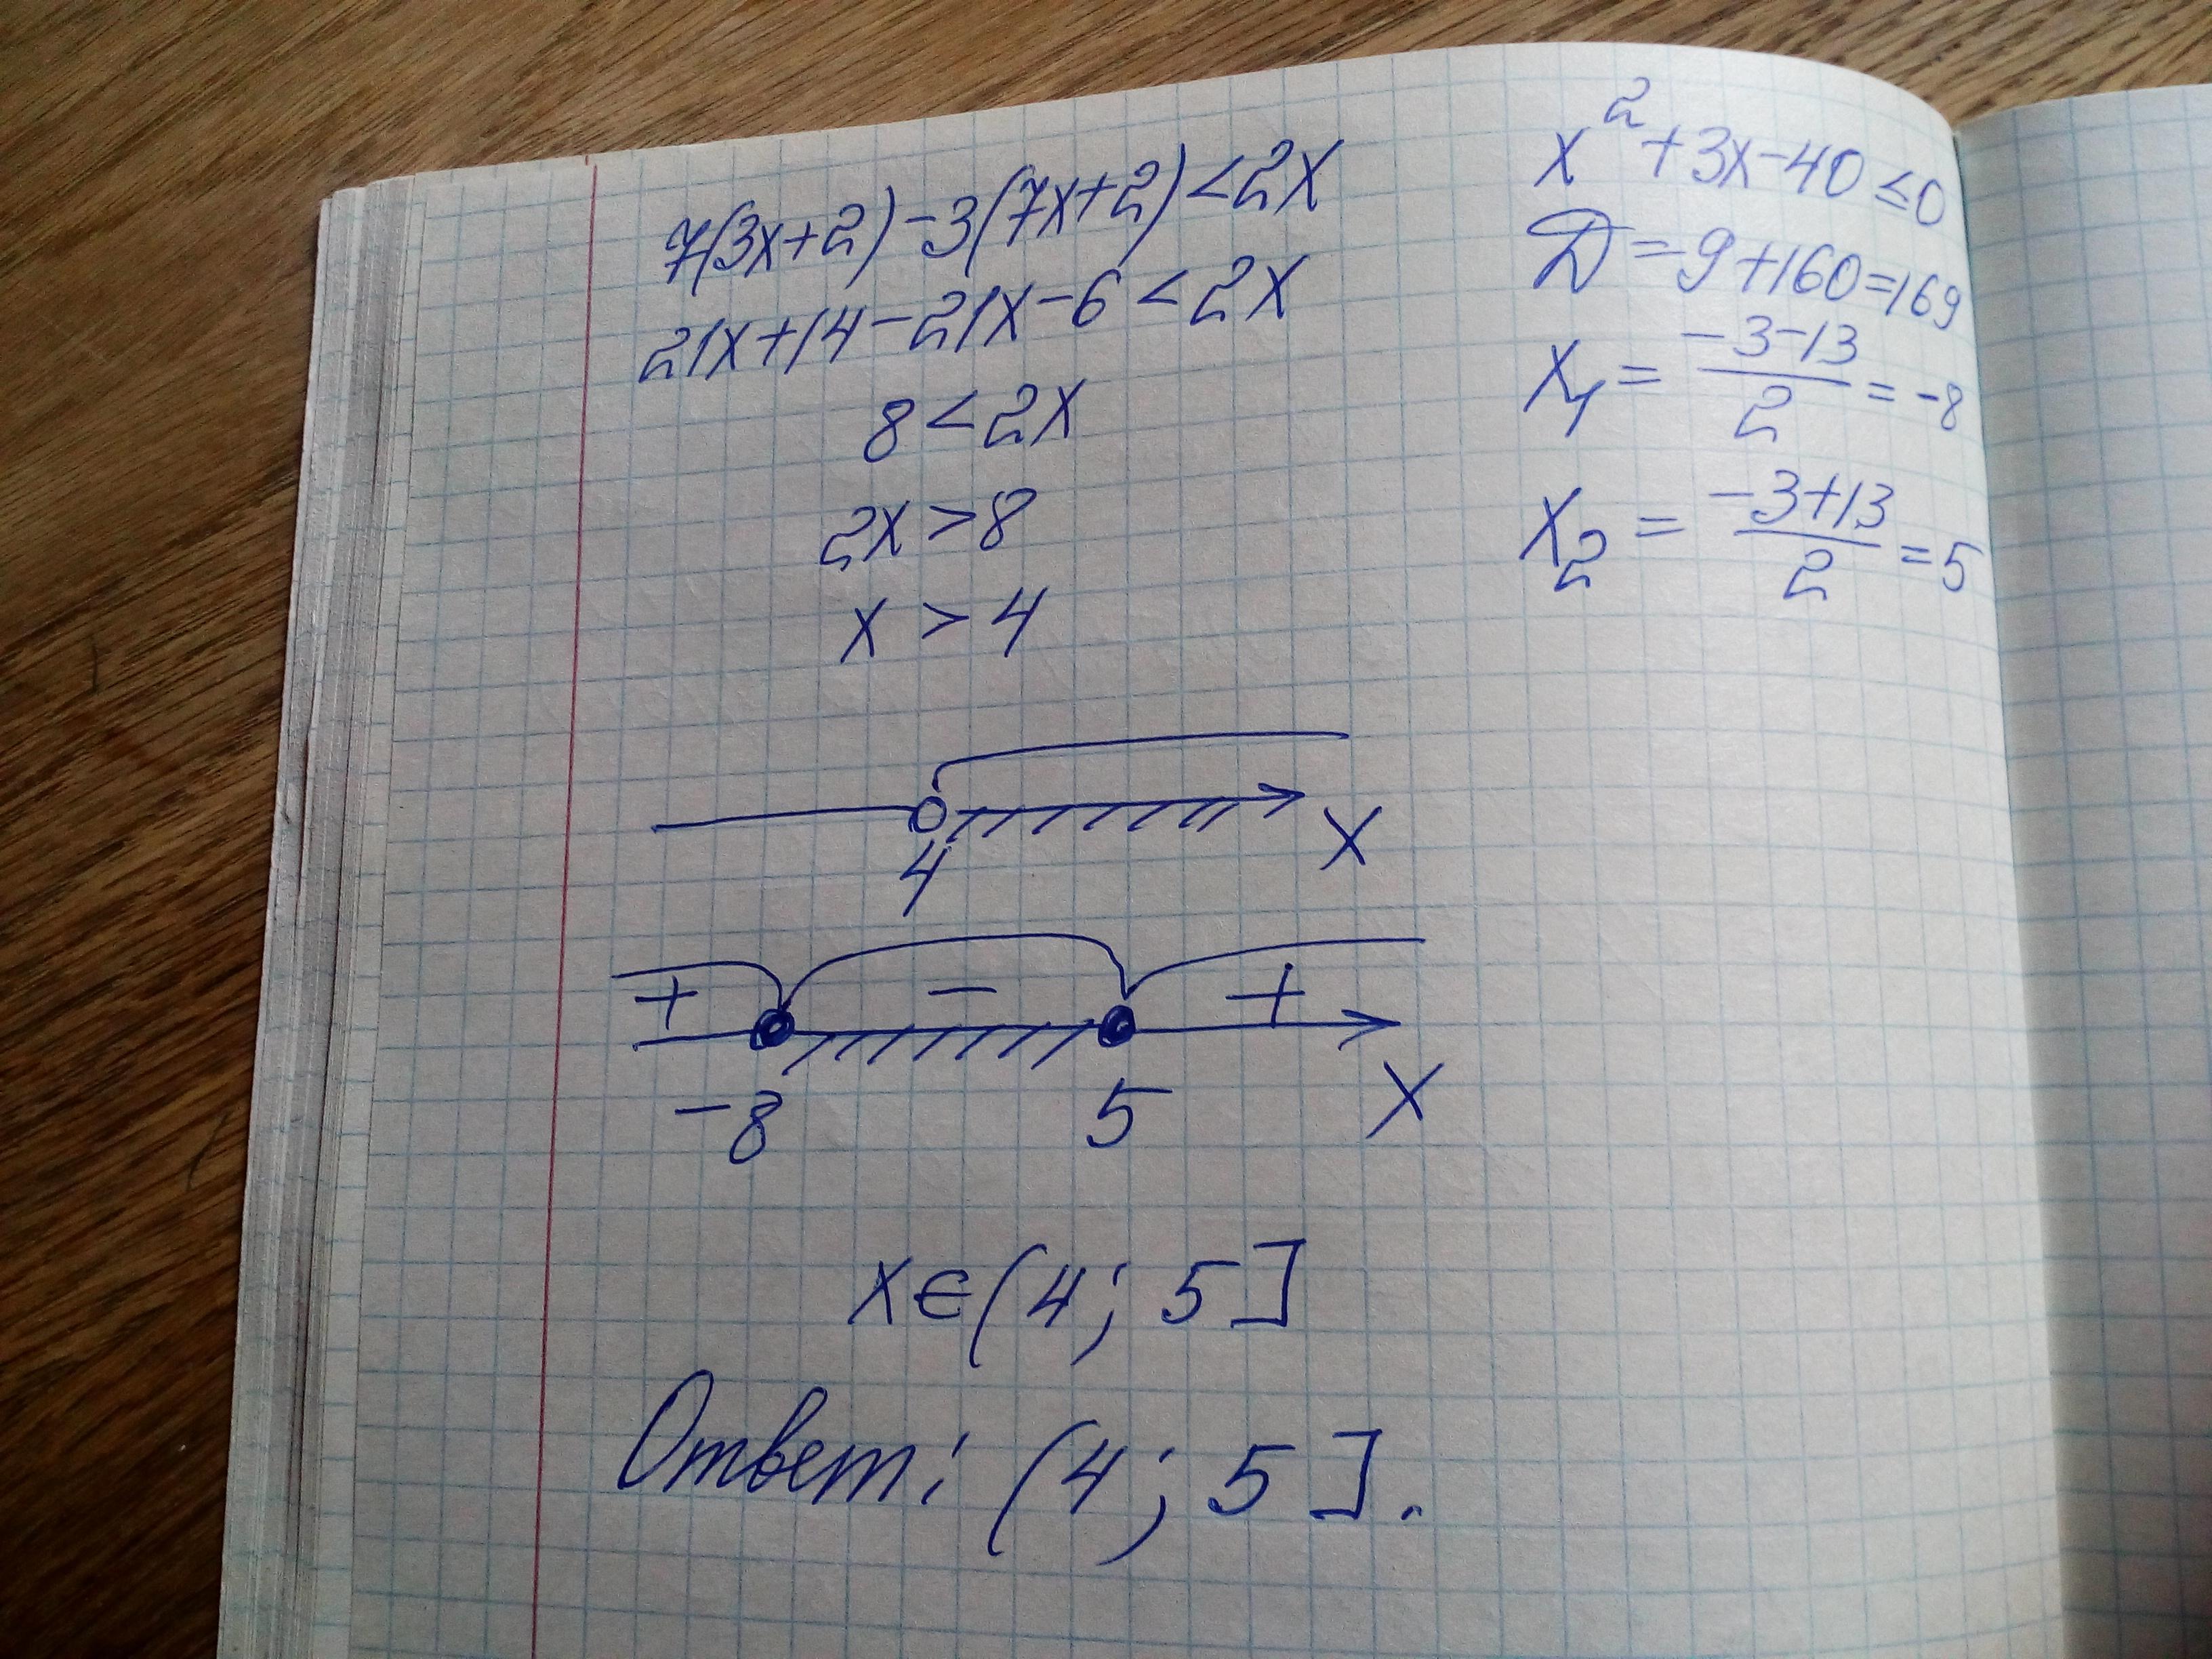 7(3x+2)-3(7x+2)<2x
21x+14-21x-6<2x
8<2x
2x>8
x>4
x²+3x-40≤0
D=9+160=169
x₁=(-3-13)/2=-8
x₂=(-3+13)/2=5
4 x
+ - +
-8 5 x
x∈(4; 5]
Ответ: (4; 5].